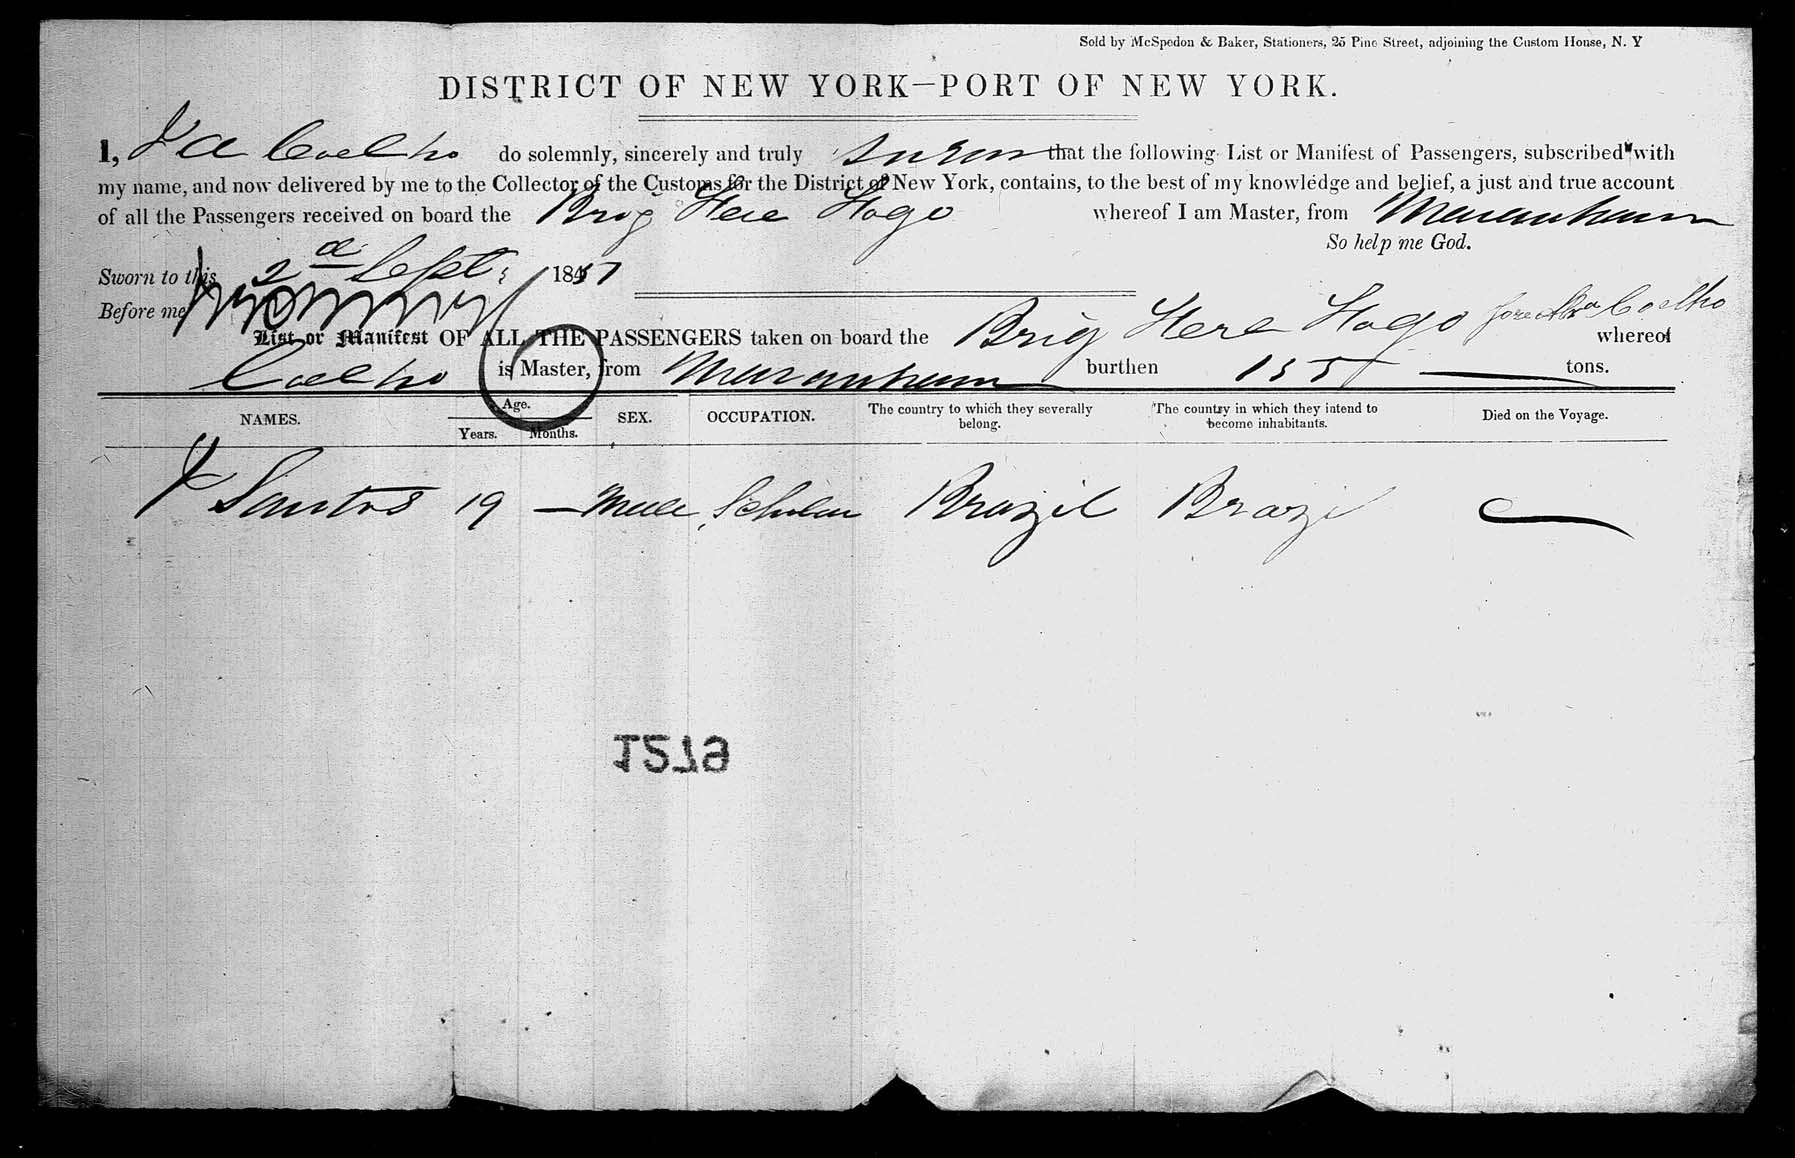 Sold by McSpedon & Baker, Stationers, 25 Pine Street, adjoining the Custom House, N. Y
DISTRICT OF NEW YORK—PORT OF NEW YORK.
I, J A Coelho do solemnly, sincerely and truly swear that the following List or Manifest of Passengers, subscribed with
my name, and now delivered by me to the Collector of the Customs for the District of New York, contains, to the best of my knowledge and belief, a just and true account
of all the Passengers received on board the Brig Here Hago whereof I am Master, from Maranham
So help me God.
Sworn to this 2d Sept. 1847
Before me
Coelho
List or Manifest OF ALL THE PASSENGERS taken on board the Brig Here Hago whereof
Coelho is Master, from Maranham burthen 155 tons.
NAMES. Age. Years. Months. SEX. OCCUPATION. The country to which they severally belong. The country in which they intend to become inhabitants. Died on the Voyage.
J Santos 19 — Male Scholar Brazil Brazil —
1579